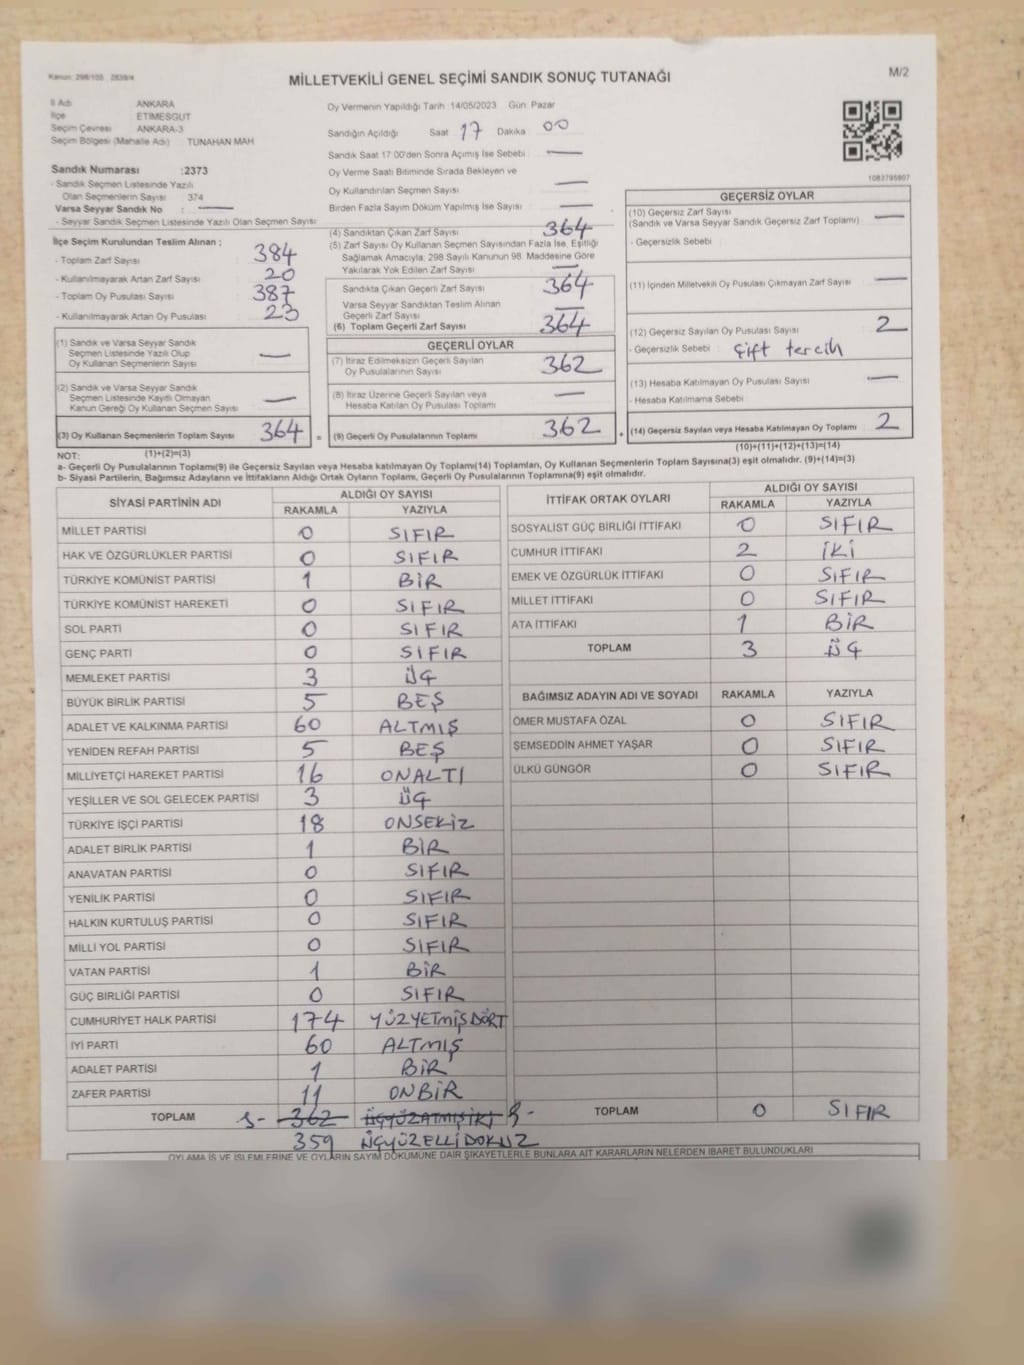 Kanun: 298/105 2839/4
MİLLETVEKİLİ GENEL SEÇİMİ SANDIK SONUÇ TUTANAĞI
M/2
İl Adı ANKARA
İlçe ETİMESGUT
Seçim Çevresi ANKARA-3
Seçim Bölgesi (Mahalle Adı) TUNAHAN MAH
Oy Vermenin Yapıldığı Tarih :14/05/2023 Gün: Pazar
Sandığın Açıldığı Saat 17 Dakika 00
Sandık Saat 17:00'den Sonra Açımış İse Sebebi : —
Oy Verme Saati Bitiminde Sırada Bekleyen ve
Oy Kullandırılan Seçmen Sayısı —
Birden Fazla Sayım Döküm Yapılmış İse Sayısı : —
1083795807
Sandık Numarası :2373
- Sandık Seçmen Listesinde Yazılı
Olan Seçmenlerin Sayısı 374
Varsa Seyyar Sandık No : —
- Seyyar Sandık Seçmen Listesinde Yazılı Olan Seçmen Sayısı:
İlçe Seçim Kurulundan Teslim Alınan ;
- Toplam Zarf Sayısı 384
- Kullanılmayarak Artan Zarf Sayısı 20
- Toplam Oy Pusulası Sayısı 387
- Kullanılmayarak Artan Oy Pusulası 23
(1) Sandık ve Varsa Seyyar Sandık
Seçmen Listesinde Yazılı Olup
Oy Kullanan Seçmenlerin Sayısı —
(2) Sandık ve Varsa Seyyar Sandık
Seçmen Listesinde Kayıtlı Olmayan
Kanun Gereği Oy Kullanan Seçmen Sayısı —
(3) Oy Kullanan Seçmenlerin Toplam Sayısı 364 =
(1)+(2)=(3)
(4) Sandıktan Çıkan Zarf Sayısı 364
(5) Zarf Sayısı Oy Kullanan Seçmen Sayısından Fazla İse, Eşitliği
Sağlamak Amacıyla, 298 Sayılı Kanunun 98. Maddesine Göre
Yakılarak Yok Edilen Zarf Sayısı —
Sandıkta Çıkan Geçerli Zarf Sayısı 364
Varsa Seyyar Sandıktan Teslim Alınan
Geçerli Zarf Sayısı —
(6) Toplam Geçerli Zarf Sayısı 364
GEÇERLİ OYLAR
(7) İtiraz Edilmeksizin Geçerli Sayılan
Oy Pusulalarının Sayısı 362
(8) İtiraz Üzerine Geçerli Sayılan veya
Hesaba Katılan Oy Pusulası Toplamı —
(9) Geçerli Oy Pusulalarının Toplamı 362 +
GEÇERSİZ OYLAR
(10) Geçersiz Zarf Sayısı
(Sandık ve Varsa Seyyar Sandık Geçersiz Zarf Toplamı) —
- Geçersizlik Sebebi
(11) İçinden Milletvekili Oy Pusulası Çıkmayan Zarf Sayısı —
(12) Geçersiz Sayılan Oy Pusulası Sayısı 2
- Geçersizlik Sebebi : Çift tercih
(13) Hesaba Katılmayan Oy Pusulası Sayısı —
- Hesaba Katılmama Sebebi
(14) Geçersiz Sayılan veya Hesaba Katılmayan Oy Toplamı 2
(10)+(11)+(12)+(13)=(14)
NOT:
a- Geçerli Oy Pusulalarının Toplamı(9) ile Geçersiz Sayılan veya Hesaba katılmayan Oy Toplamı(14) Toplamları, Oy Kullanan Seçmenlerin Toplam Sayısına(3) eşit olmalıdır. (9)+(14)=(3)
b- Siyasi Partilerin, Bağımsız Adayların ve İttifakların Aldığı Ortak Oyların Toplamı, Geçerli Oy Pusulalarının Toplamına(9) eşit olmalıdır.
SİYASİ PARTİNİN ADI ALDIĞI OY SAYISI
RAKAMLA YAZIYLA
MİLLET PARTİSİ 0 SIFIR
HAK VE ÖZGÜRLÜKLER PARTİSİ 0 SIFIR
TÜRKİYE KOMÜNİST PARTİSİ 1 BİR
TÜRKİYE KOMÜNİST HAREKETİ 0 SIFIR
SOL PARTİ 0 SIFIR
GENÇ PARTİ 0 SIFIR
MEMLEKET PARTİSİ 3 ÜÇ
BÜYÜK BİRLİK PARTİSİ 5 BEŞ
ADALET VE KALKINMA PARTİSİ 60 ALTMIŞ
YENİDEN REFAH PARTİSİ 5 BEŞ
MİLLİYETÇİ HAREKET PARTİSİ 16 ONALTI
YEŞİLLER VE SOL GELECEK PARTİSİ 3 ÜÇ
TÜRKİYE İŞÇİ PARTİSİ 18 ONSEKİZ
ADALET BİRLİK PARTİSİ 1 BİR
ANAVATAN PARTİSİ 0 SIFIR
YENİLİK PARTİSİ 0 SIFIR
HALKIN KURTULUŞ PARTİSİ 0 SIFIR
MİLLİ YOL PARTİSİ 0 SIFIR
VATAN PARTİSİ 1 BİR
GÜÇ BİRLİĞİ PARTİSİ 0 SIFIR
CUMHURİYET HALK PARTİSİ 174 YÜZYETMİŞDÖRT
İYİ PARTİ 60 ALTMIŞ
ADALET PARTİSİ 1 BİR
ZAFER PARTİSİ 11 ONBİR
TOPLAM 362 ÜÇYÜZATMIŞİKİ
359 ÜÇYÜZELLİDOKUZ
İTTİFAK ORTAK OYLARI ALDIĞI OY SAYISI
RAKAMLA YAZIYLA
SOSYALİST GÜÇ BİRLİĞİ İTTİFAKI 0 SIFIR
CUMHUR İTTİFAKI 2 İKİ
EMEK VE ÖZGÜRLÜK İTTİFAKI 0 SIFIR
MİLLET İTTİFAKI 0 SIFIR
ATA İTTİFAKI 1 BİR
TOPLAM 3 ÜÇ
BAĞIMSIZ ADAYIN ADI VE SOYADI RAKAMLA YAZIYLA
ÖMER MUSTAFA ÖZAL 0 SIFIR
ŞEMSEDDİN AHMET YAŞAR 0 SIFIR
ÜLKÜ GÜNGÖR 0 SIFIR
TOPLAM 0 SIFIR
OYLAMA İŞ VE İŞLEMLERİNE VE OYLARIN SAYIM DÖKÜMÜNE DAİR ŞİKAYETLERLE BUNLARA AİT KARARLARIN NELERDEN İBARET BULUNDUKLARI